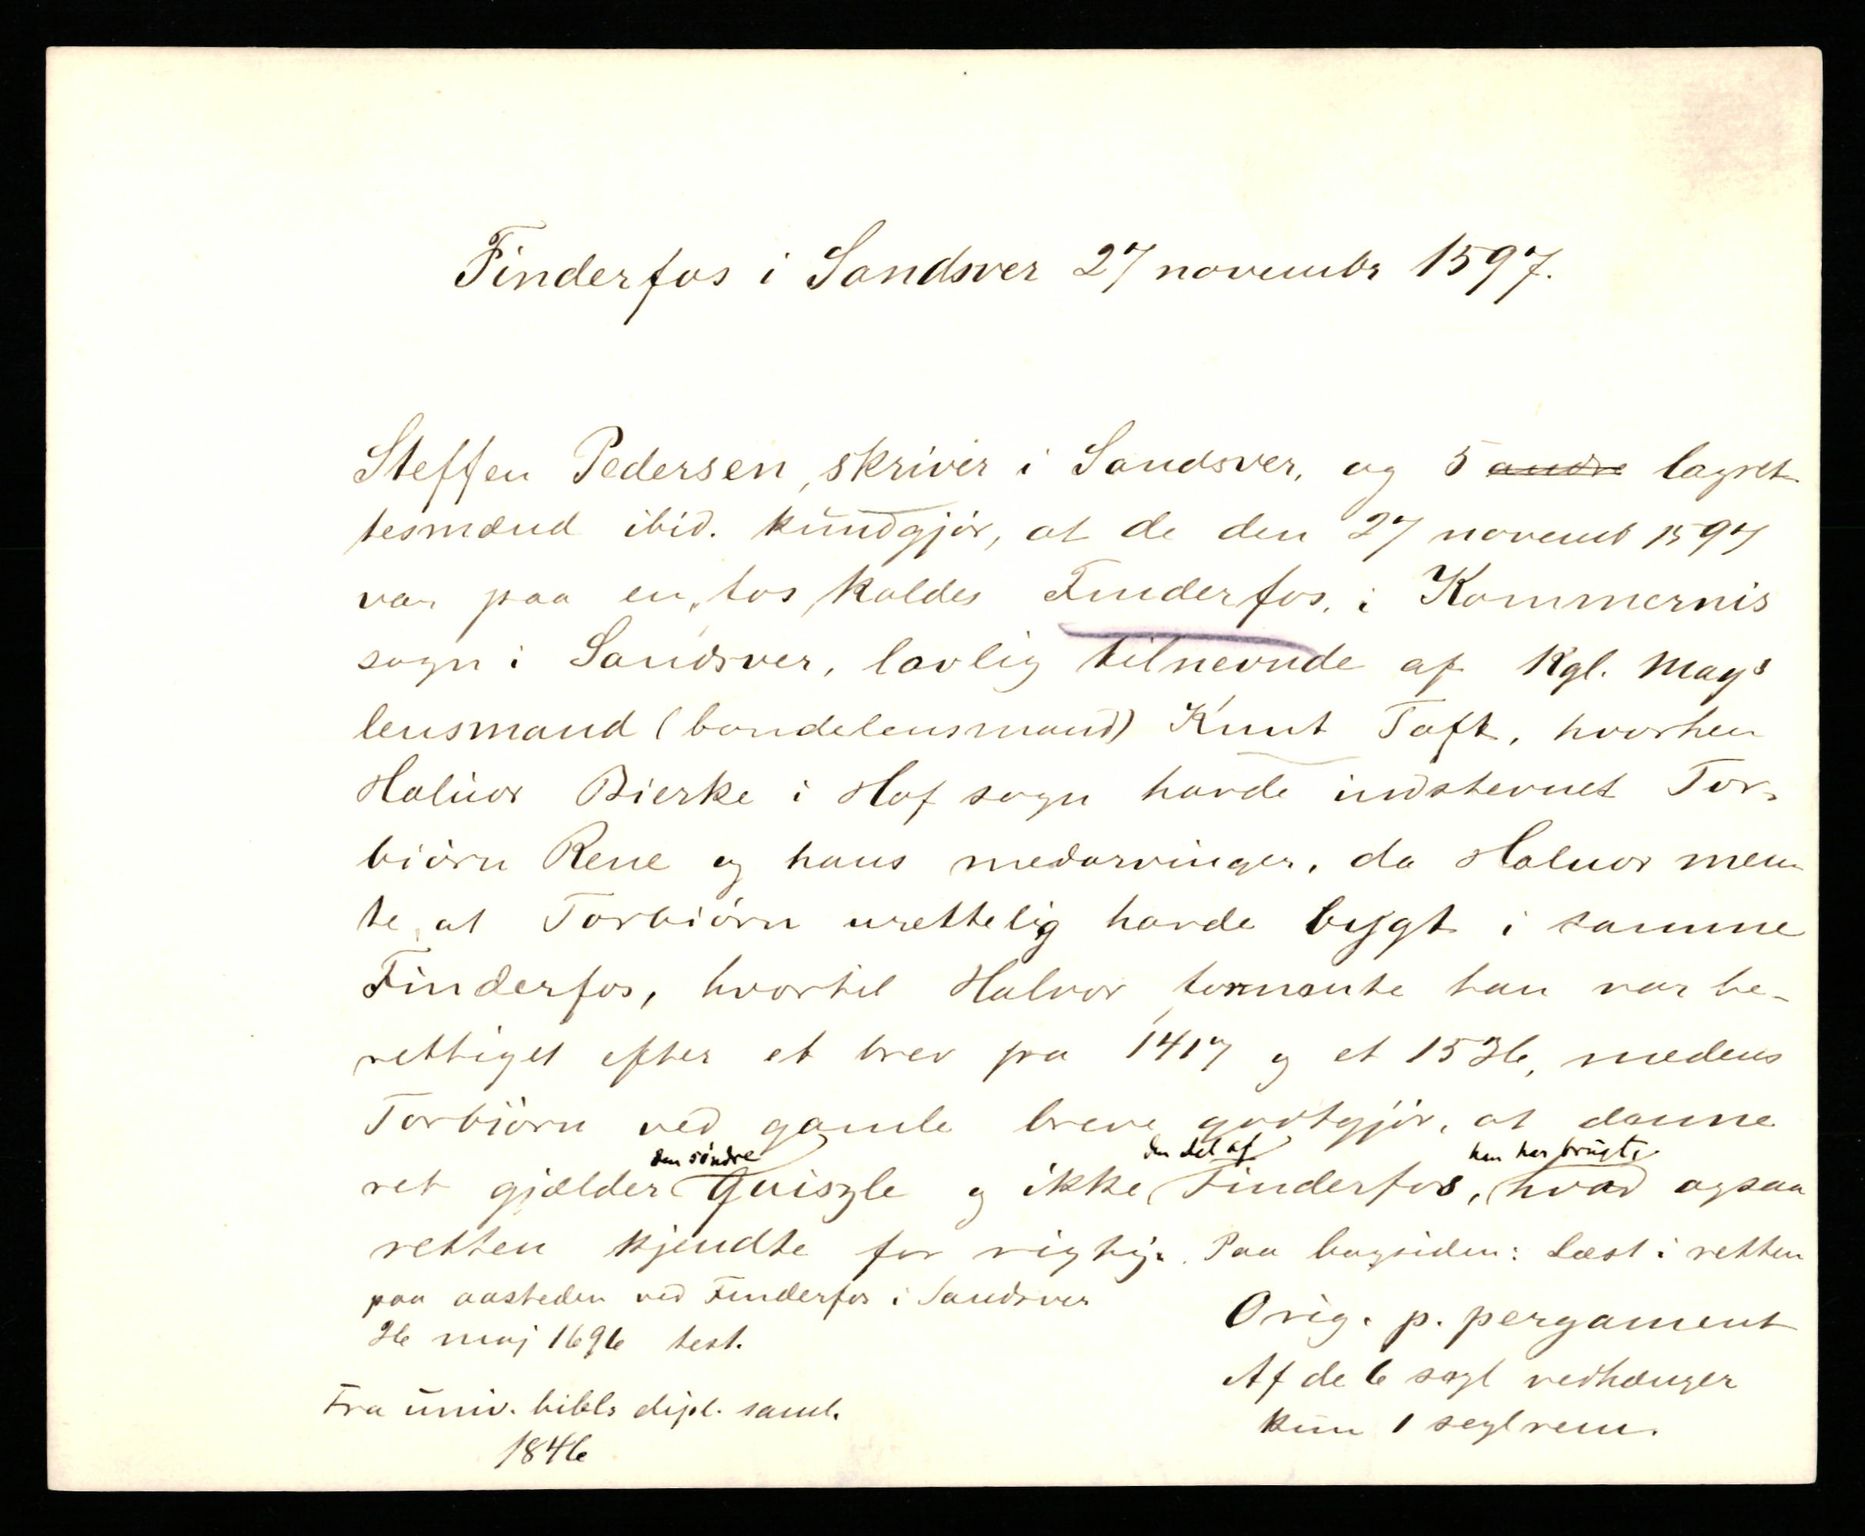 Finderfos i Sandsver 27 novembr 1597.
Steffen Pedersen, skriver i Sandsver, og 5 andre lagret-
tesmænd ibid. kundgjør, at de den 27 novemb 1597
var paa en fos kaldes Finderfos, i Kommernis
sogn i Sandsver, lovlig tilnevnde af Kgl. Mays
lensmand (bondelensmand) Knut Toft, hvorhen
Haluor Bierke i Hof sogn havde indstevnet Tor-
biørn Rene og hans medarvinger, da Haluor men-
te, at Torbiørn urettelig havde bygt i samme
Finderfos, hvortil Halvor formente han var be-
rettiget efter et brev fra 1417 og et 1536, medens
Torbiørn ved gamle breve godtgjør, at denne
den søndre den del af han har brugt,
ret gjælder Quiszle og ikke Finderfos, hvad ogsaa
retten kjendte for rigtig. Paa bagsiden: Læst i retten
paa aasteden ved Finderfos i Sandsver
26 maj 1696 test.
Orig. p. pergament
Af de 6 segl vedhænger
kun 1 seglrem.
Fra univ. bibls dipl. saml.
1846